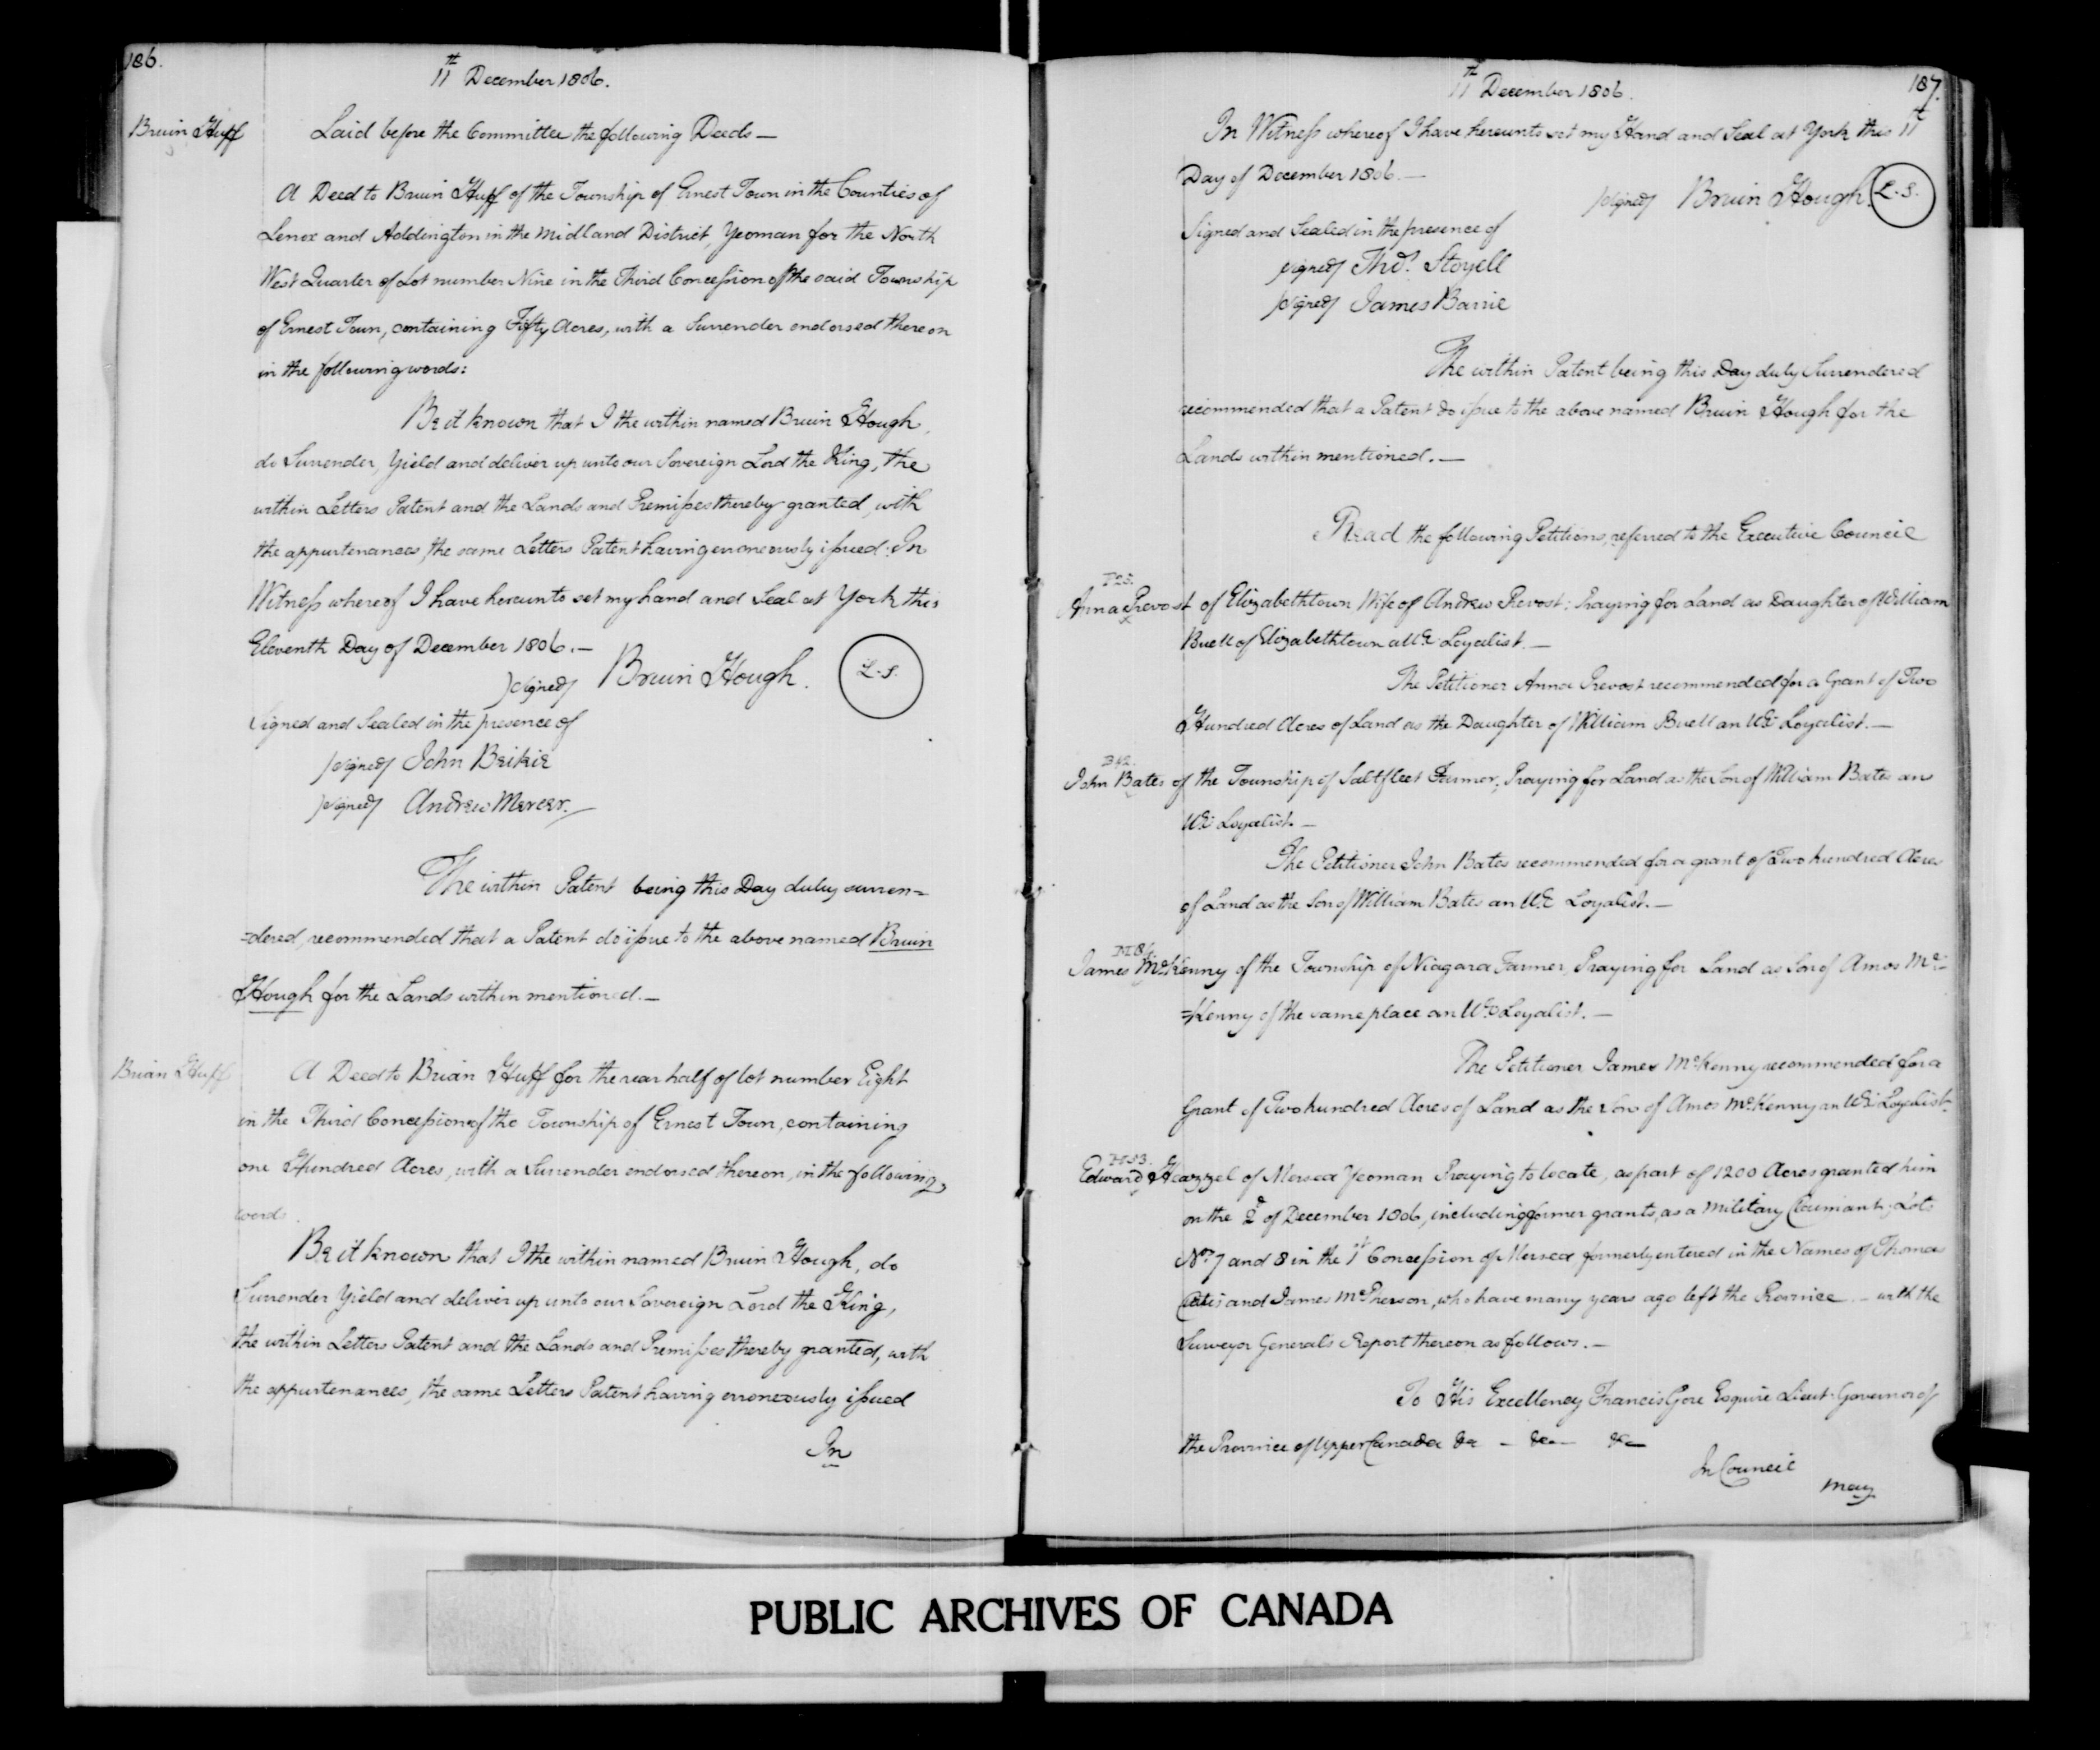 186.
11th December 1806.
Bruin Huff
Laid before the Committee the following Deeds —
A Deed to Bruin Huff of the Township of Ernest Town in the Counties of
Lenox and Addington in the Midland District, Yeoman for the North
West Quarter of Lot number Nine in the Third Concession of the said Township
of Ernest Town, containing Fifty Acres, with a Surrender endorsed thereon
in the following words:
Be it known that I the within named Bruin Hough,
do Surrender, Yield and deliver up unto our Sovereign Lord the King, the
within Letters Patent and the Lands and Premisses thereby granted, with
the appurtenances, the same Letters Patent having erroneously issued: In
Witness whereof I have hereunto set my hand and Seal at York this
Eleventh Day of December 1806. —
signed Bruin Hough. L.S.
Signed and Sealed in the presence of
signed John Beikie
signed Andrew Mercer.
The within Patent being this Day duly surren=
=dered, recommended that a Patent do issue to the above named Bruin
Hough for the Lands within mentioned. —
Brian Huff
A Deed to Brian Huff for the rear half of lot number Eight
in the Third Concession of the Township of Ernest Town, containing
one Hundred Acres, with a Surrender endorsed thereon, in the following
words.
Be it known that I the within named Bruin Hough, do
Surrender Yield and deliver up unto our Sovereign Lord the King,
the within Letters Patent and the Lands and Premisses thereby granted, with
the appurtenances, the same Letters Patent having erroneously issued
In
11th December 1806.
187.
In Witness whereof I have hereunto set my Hand and Seal at York this 11th
Day of December 1806. —
signed Bruin Hough. L.S.
Signed and Sealed in the presence of
signed Thos. Stoyell
signed James Barrie
The within Patent being this Day duly Surrendered
recommended that a Patent do issue to the above named Bruin Hough for the
Lands within mentioned. —
Read the following Petitions, referred to the Executive Council
Anna Prevost of Elizabethtown Wife of Andrew Prevost; Praying for Land as Daughter of William
Buell of Elizabethtown a U.E Loyalist. —
The Petitioner Anna Prevost recommended for a Grant of Two
Hundred Acres of Land as the Daughter of William Buell an U.E Loyalist. —
B42.
John Bates of the Township of Saltfleet Farmer; Praying for Land as the Son of William Bates an
U.E Loyalist. —
The Petitioner John Bates recommended for a grant of Two hundred Acres
of Land as the Son of William Bates an U.E Loyalist. —
James McKenny of the Township of Niagara Farmer, Praying for Land as Son of Amos Mc=
=Kenny of the same place an U.E Loyalist. —
The Petitioner James McKenny recommended for a
Grant of Two hundred Acres of Land as the Son of Amos McKenny an U.E Loyalist.
Edward Heazzel of Mersea Yeoman Praying to locate, as part of 1200 Acres granted him
on the 2d of December 1806, including former grants, as a Military Claimant; Lots
Nos. 7 and 8 in the 1st Concession of Mersea formerly entered in the Names of Thomas
and James McPherson, who have many years ago left the Province — with the
Surveyor General's Report thereon as follows. —
To His Excellency Francis Gore Esquire Lieut. Governor of
the Province of Upper Canada &c — &c — &c
In Council
May
PUBLIC ARCHIVES OF CANADA